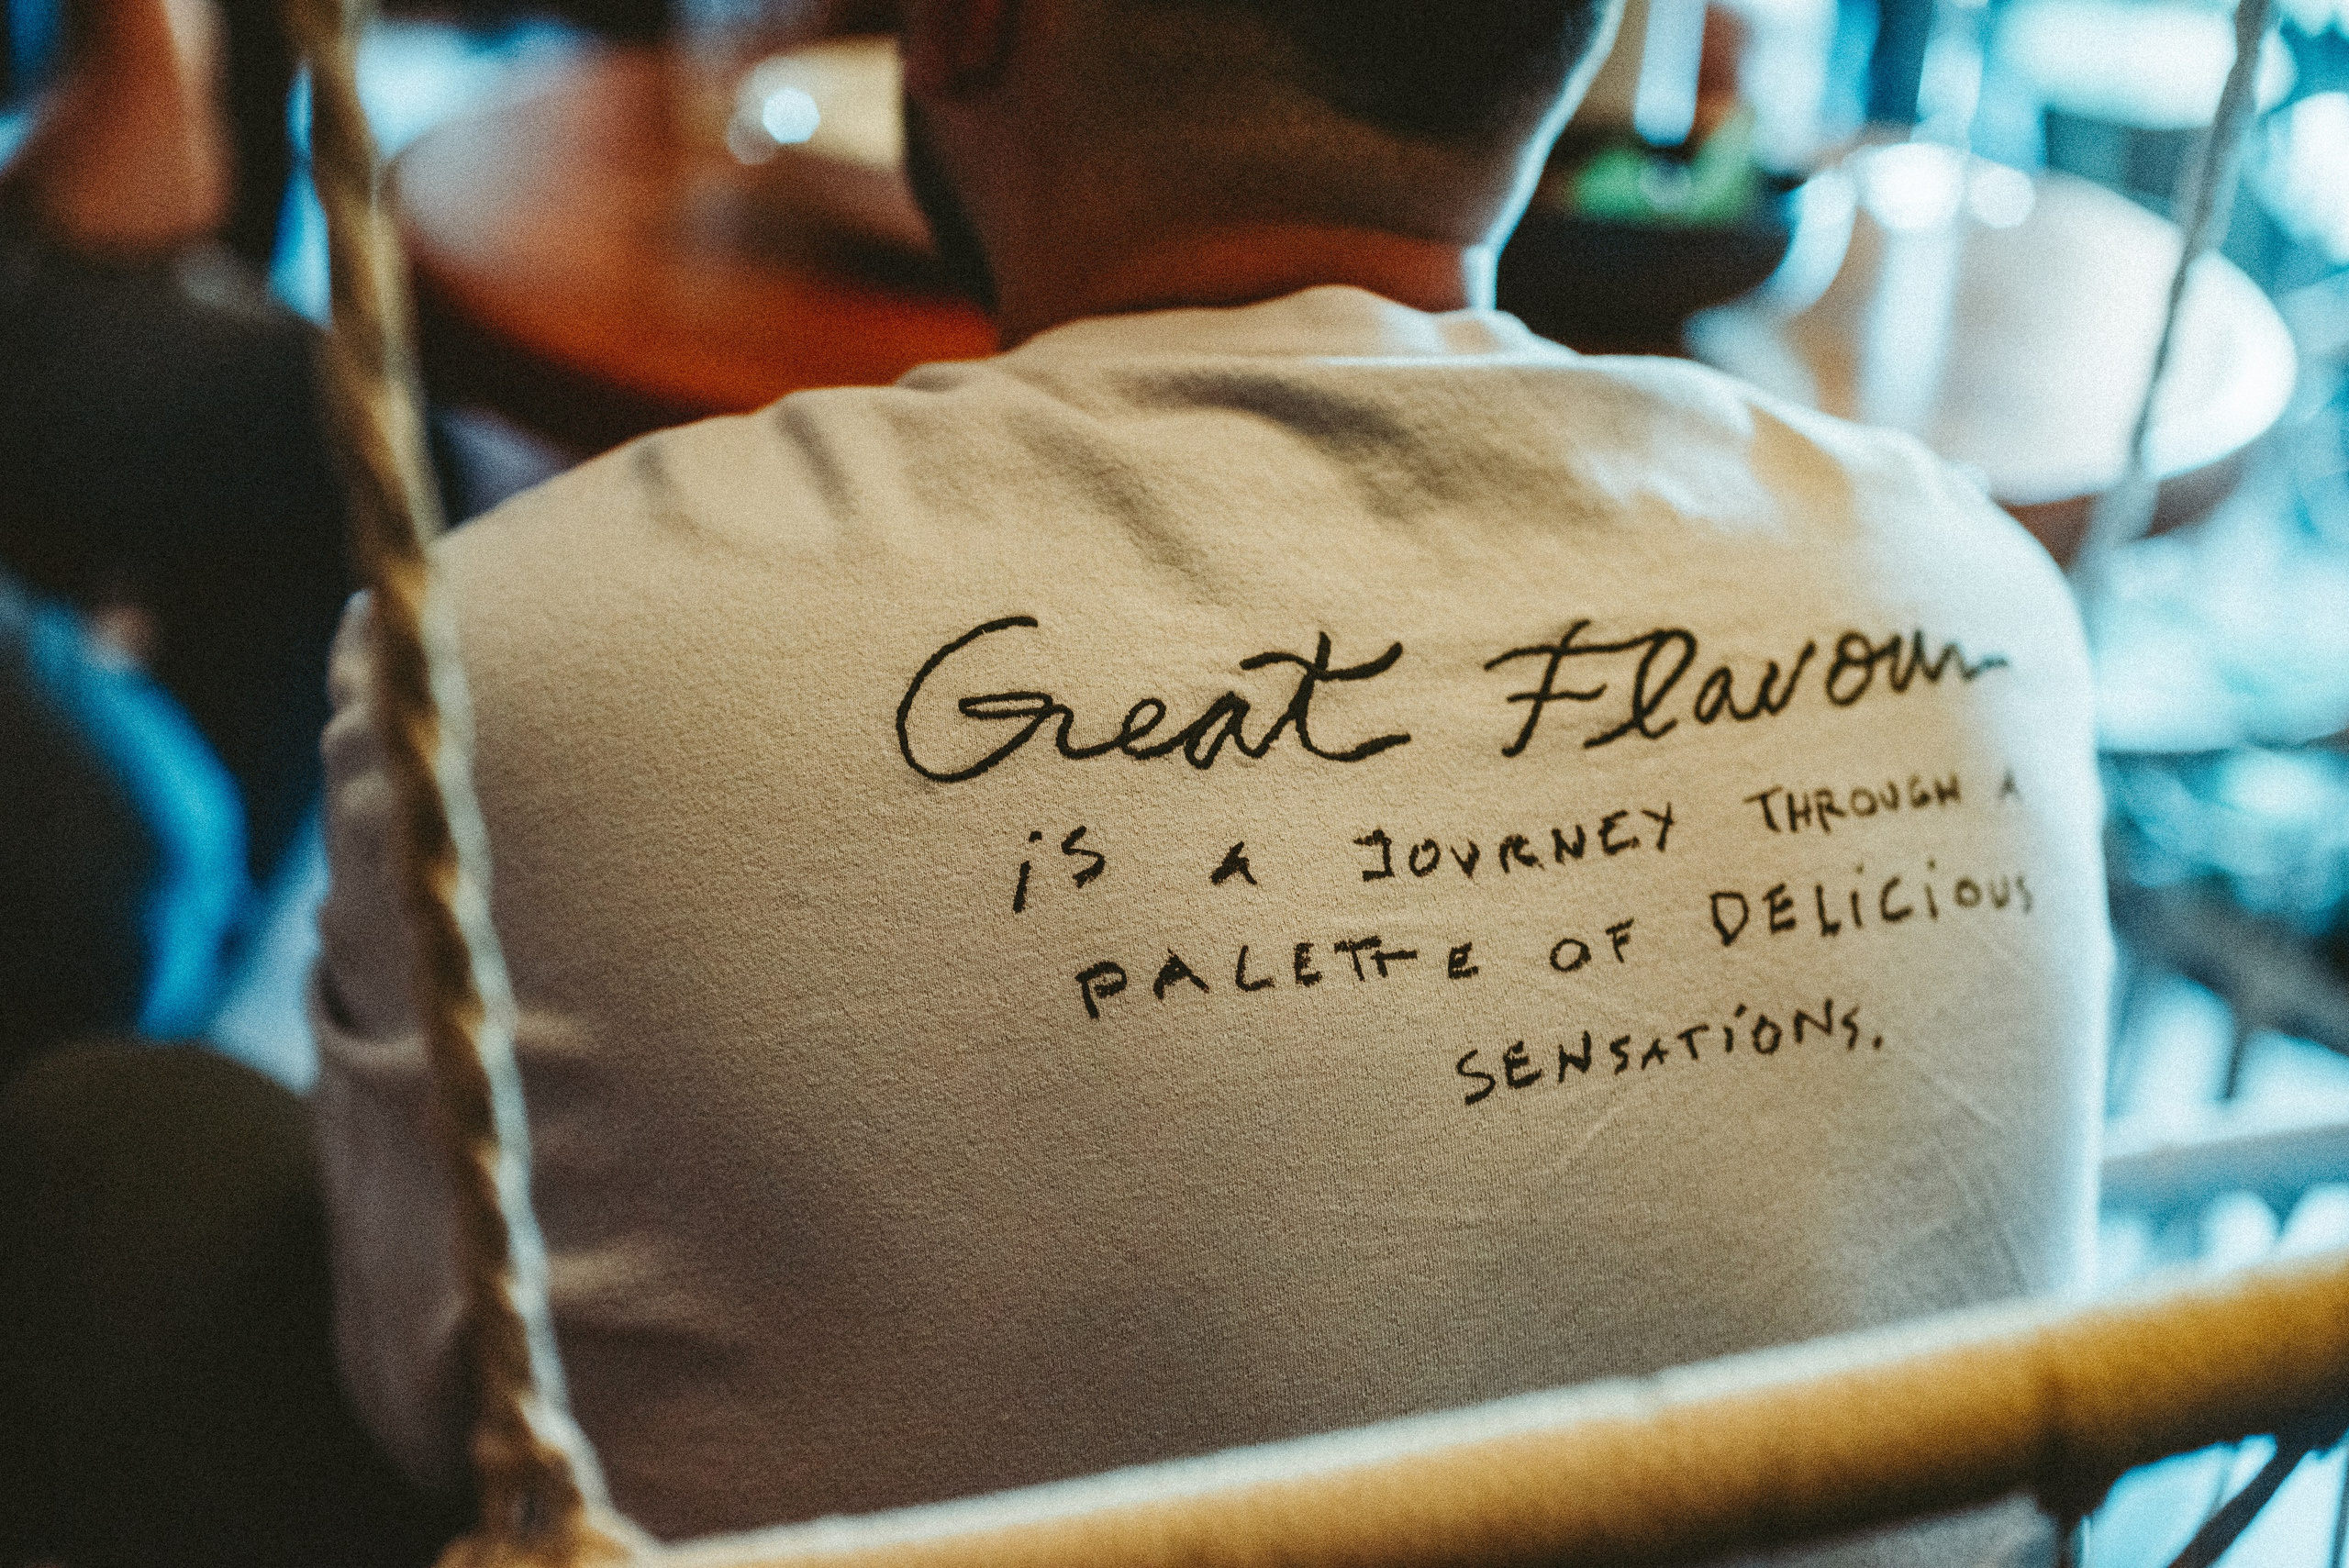 Great Flavour
iS A JOURNEY THROUGH A
PALETTE OF DELiCiOUS
SENSATiONS.